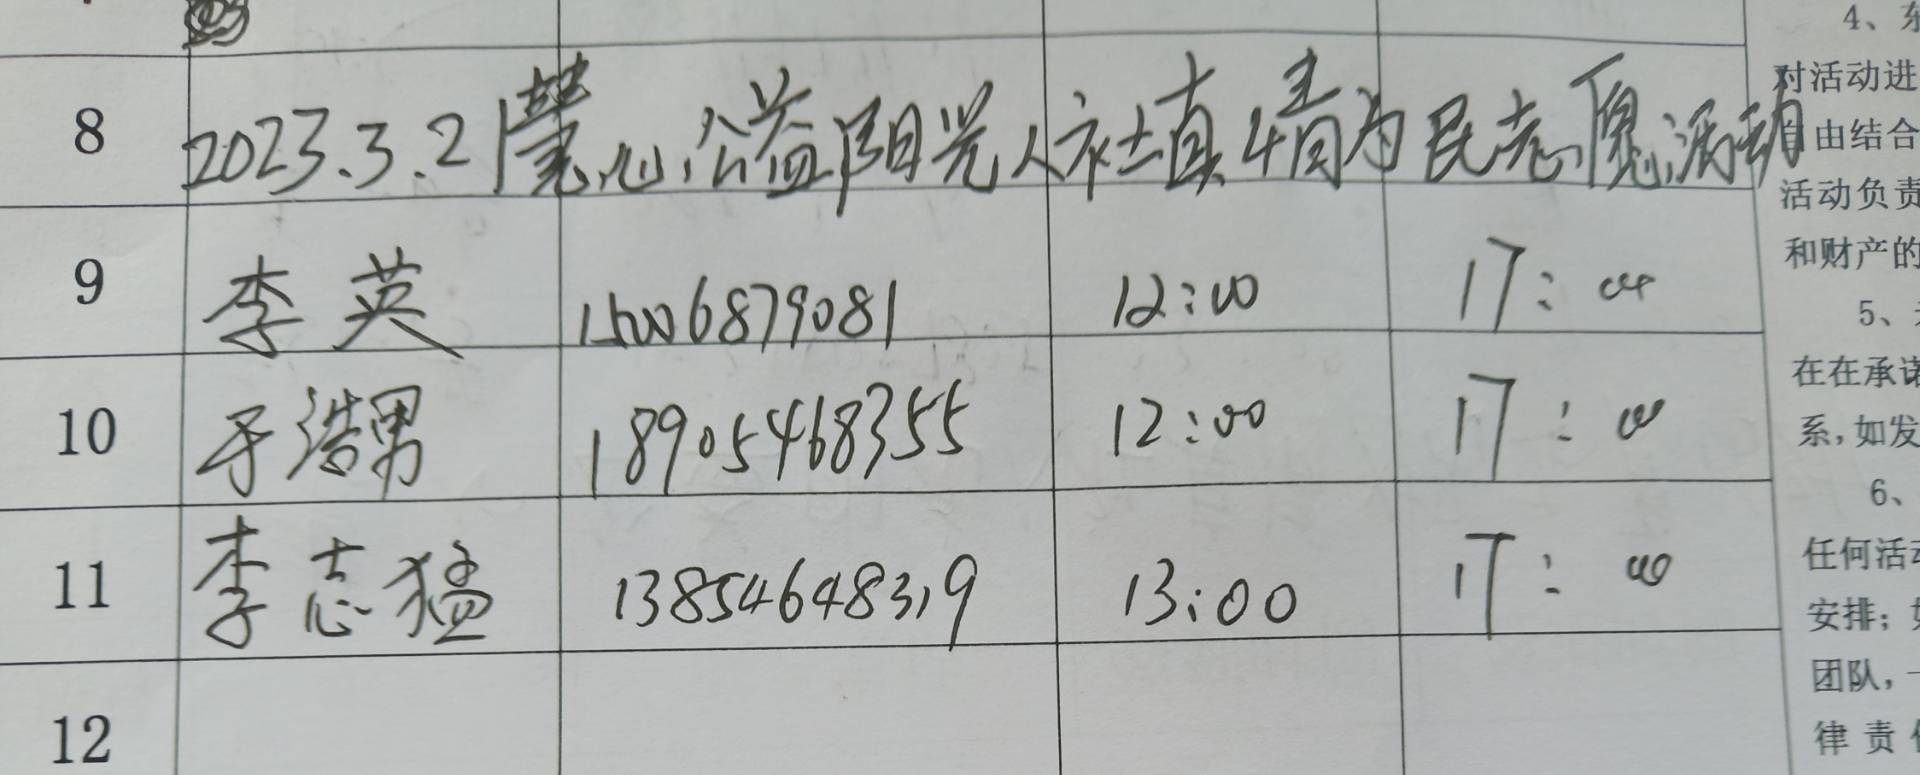 4、东
8 2023.3.21慧心公益阳光人社真情为民志愿活动
对活动进
自由结合
活动负责
9 李英 15006879081 12:00 17:00
和财产的
5、
10 于浩男 18905468355 12:00 17:00
在在承诺
系,如发
6、
11 李志猛 13854648319 13:00 17:00
任何活动
安排;如
团队,一
12
律责任